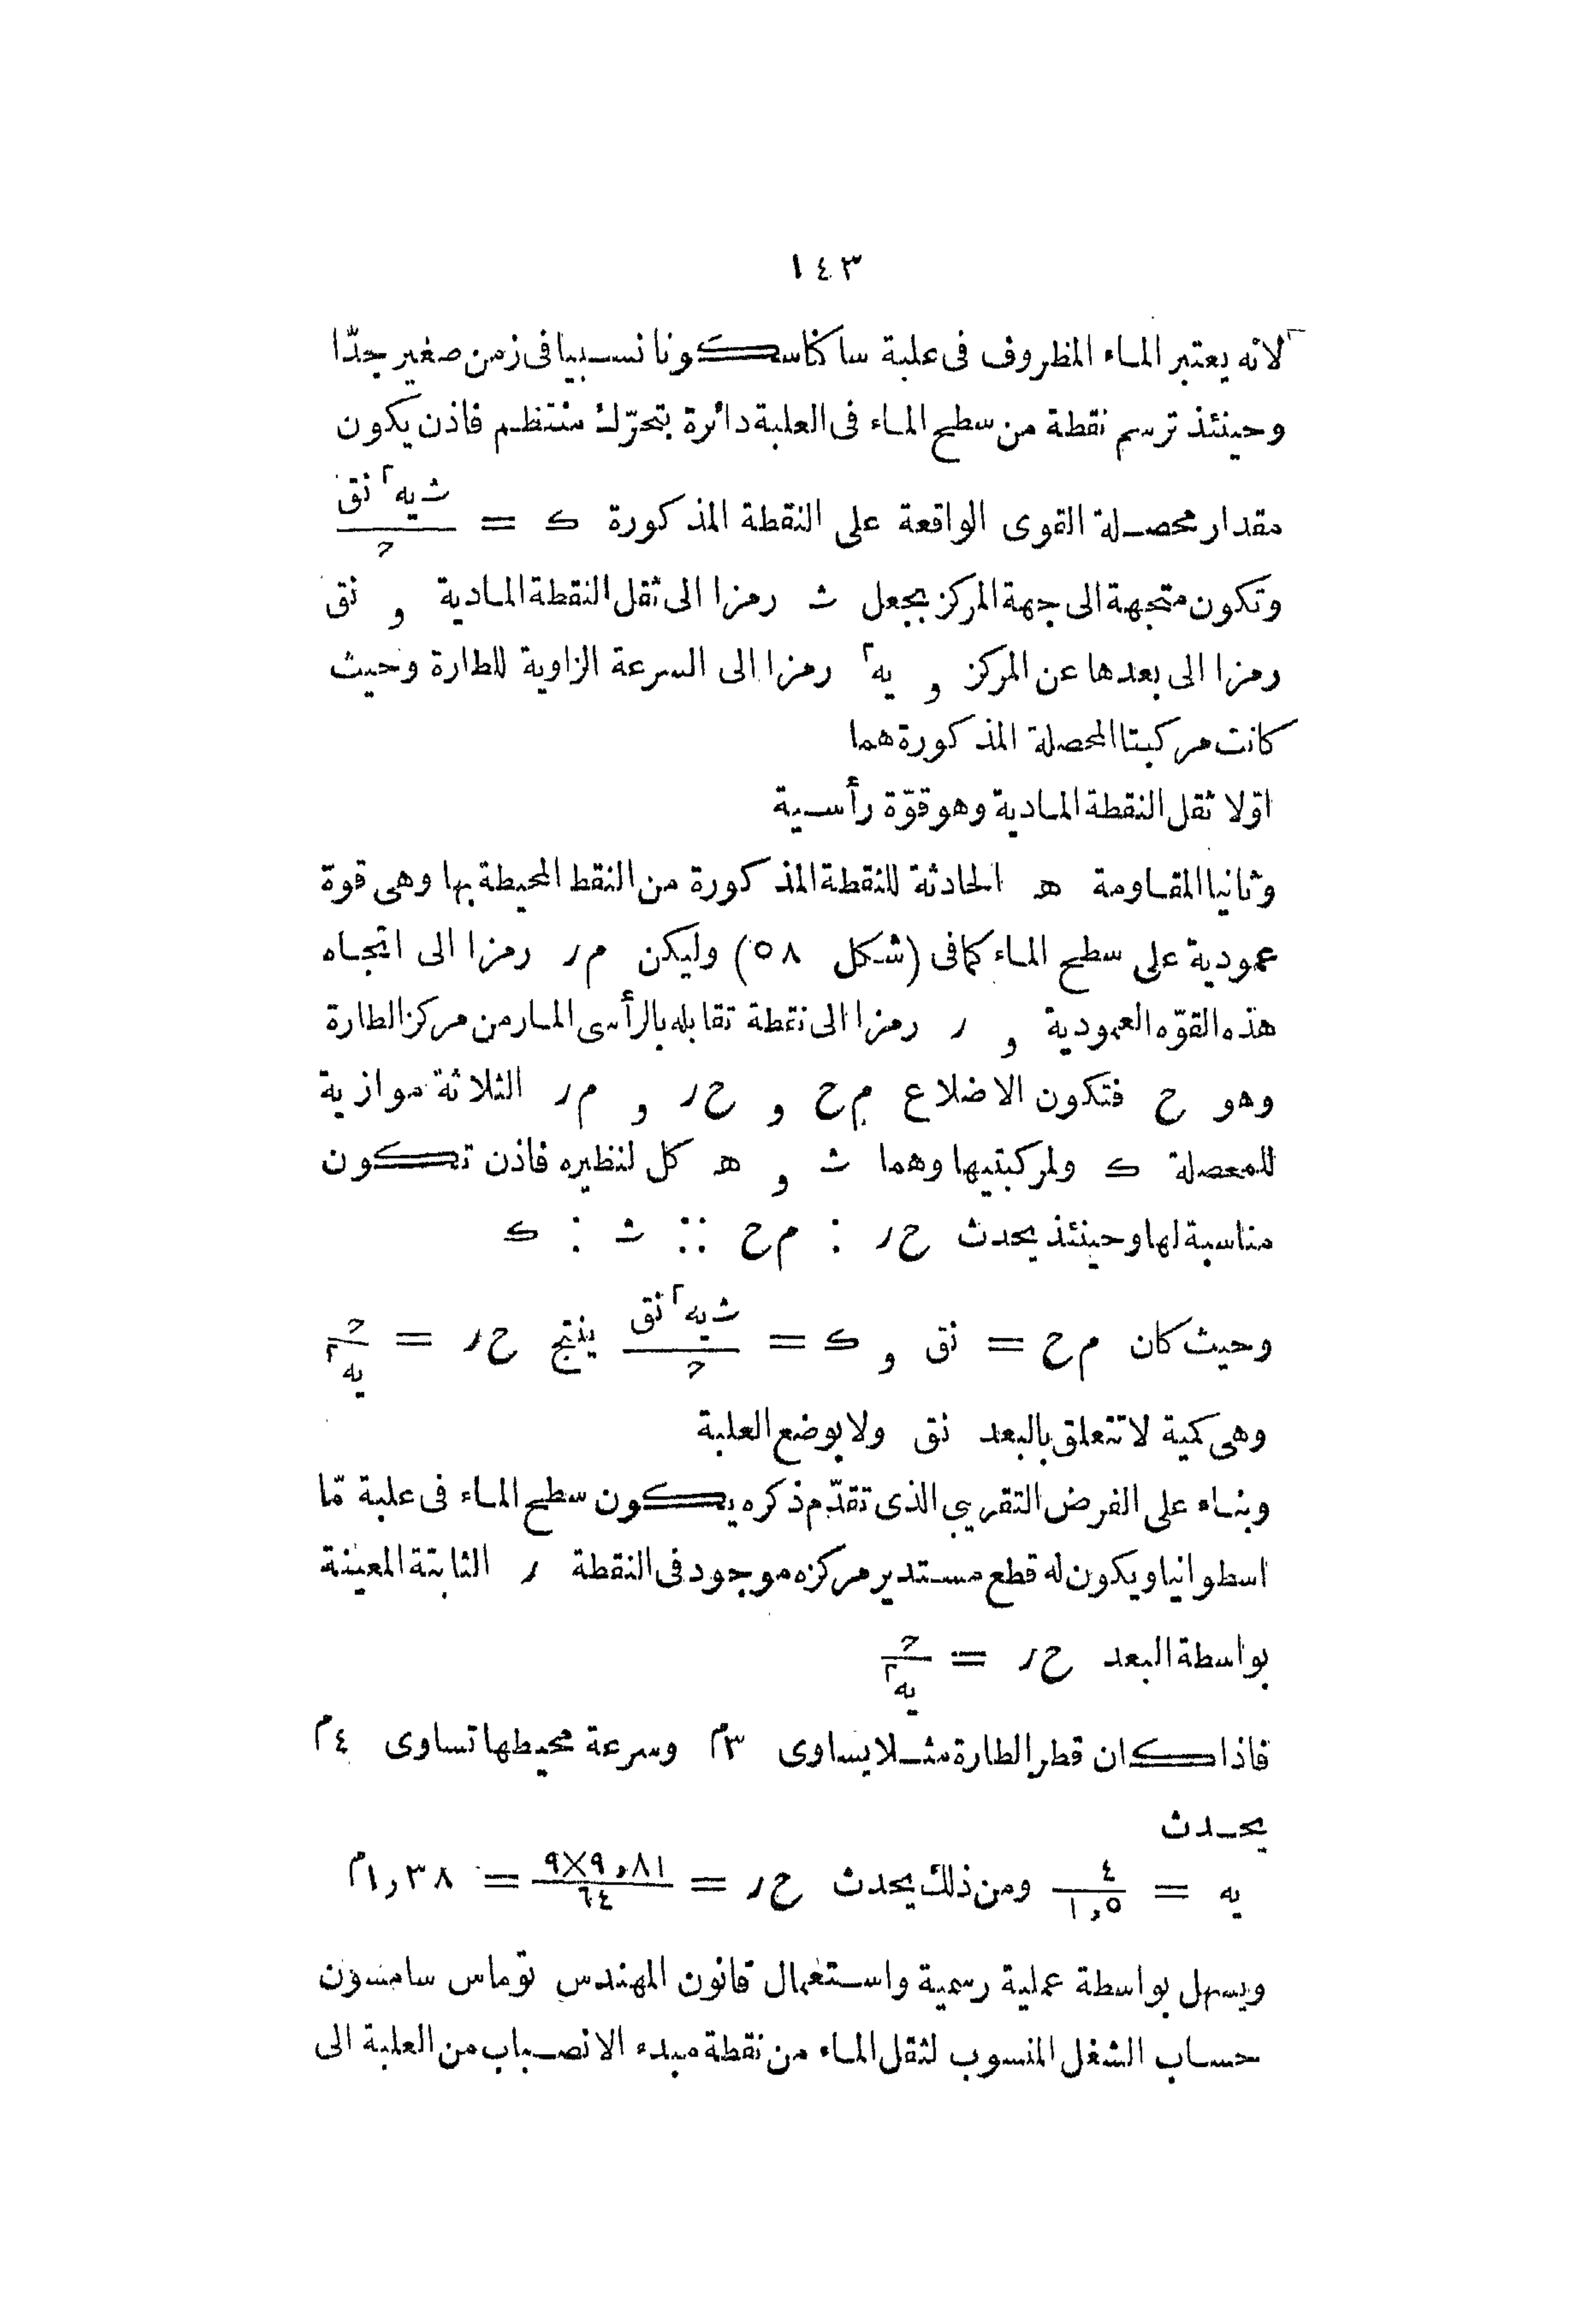 ١٤٣
لانه يعتبر الماء المظروف فى علبة ساكنا سكونا نسبيا فى زمن صغير جدّا
وحينئذ ترسم نقطة من سطح الماء فى العلبة دائرة بتحرّك منتظم فاذن يكون
مقدار محصلة القوى الواقعة على النقطة المذكورة ك = ث يه٢ نق / ح
وتكون متجهة الى جهة المركز بجعل ث رمزا الى ثقل النقطة المادية و نق
رمزا الى بعدها عن المركز و يه٢ رمزا الى السرعة الزاوية للطارة وحيث
كانت مركبتا المحصلة المذكورة هما
اوّلا ثقل النقطة المادية وهو قوّة رأسية
وثانيا المقاومة ھ الحادثة للنقطة المذكورة من النقط المحيطة بها وهى قوة
عمودية على سطح الماء كما فى (شكل ٥٨) وليكن م ر رمزا الى اتجاه
هذه القوّه العمودية و ر رمزا الى نقطة تقابله بالرأسى المار من مركز الطارة
وهو ح فتكون الاضلاع م ح و ح ر و م ر الثلاثة موازية
للمحصلة ك ولمركبتيها وهما ث و ھ كل لنظيره فاذن تكون
مناسبة لها وحينئذ يحدث ح ر : م ح :: ث : ك
وحيث كان م ح = نق و ك = ث يه٢ نق / ح ينتج ح ر = ح / يه٢
وهى كمية لا تتعلق بالبعد نق ولا بوضع العلبة
وبناء على الفرض التقريبى الذى تقدّم ذكره يكون سطح الماء فى علبة مّا
اسطوانيا ويكون له قطع مستدير مركزه موجود فى النقطة ر الثابتة المعينة
بواسطة البعد ح ر = ح / يه٢
فاذا كان قطر الطارة مثلا يساوى ٣م وسرعة محيطها تساوى ٤م
يحدث
يه = ٤ / ١,٥ ومن ذلك يحدث ح ر = ٩×٩,٨١ / ٦٤ = ١,٣٨م
ويسهل بواسطة عملية رسمية واستعمال قانون المهندس توماس سامسون
حساب الشغل المنسوب لثقل الماء من نقطة مبدء الانصباب من العلبة الى